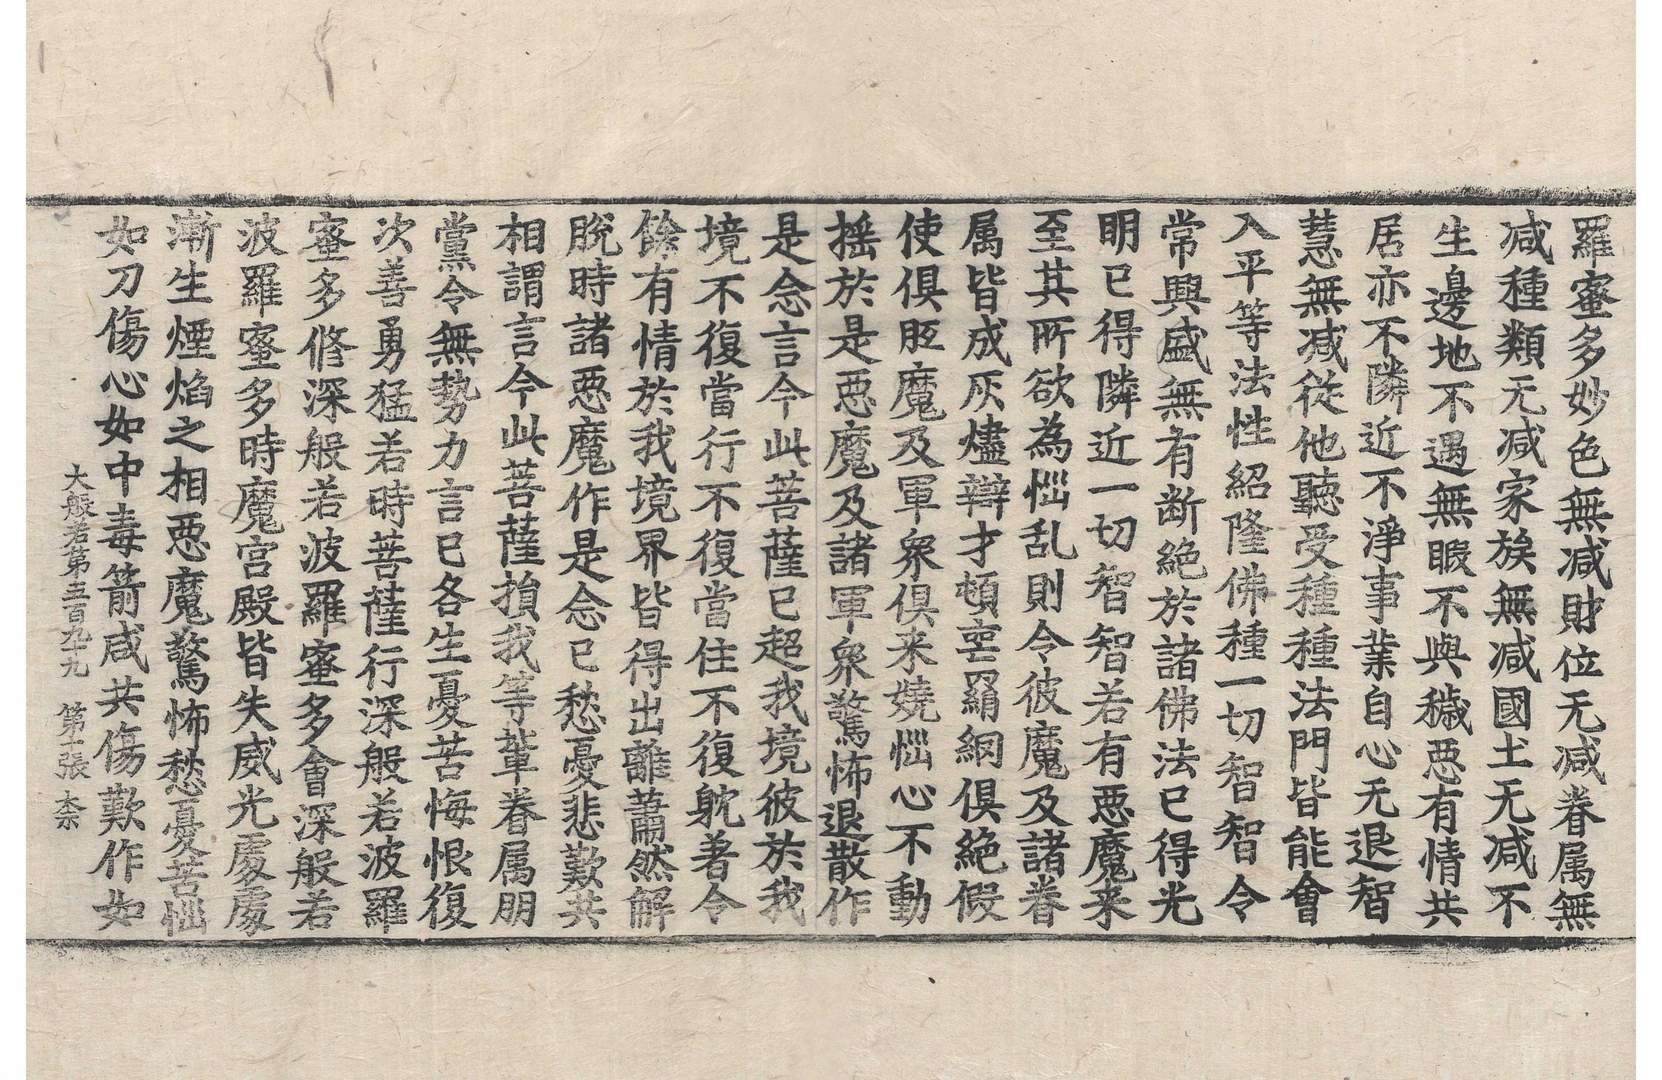 羅蜜多妙色無減財位无減眷属無
減種類无減家族無減國土无減不
生邊地不遇無暇不與穢惡有情共
居亦不隣近不淨事業自心无退智
慧無減從他聽受種種法門皆能會
入平等法性紹隆佛種一切智智令
常興盛無有断絶於諸佛法已得光
明已得隣近一切智智若有惡魔来
至其所欲為惱乱則令彼魔及諸眷
属皆成灰燼辯才頓喪羂網俱絶假
使俱胝魔及軍衆俱来嬈惱心不動
揺於是惡魔及諸軍衆驚怖退散作
是念言今此菩薩已超我境彼於我
境不復當行不復當住不復躭著令
餘有情於我境界皆得出離蕭然解
脫時諸惡魔作是念已愁憂悲歎共
相謂言今此菩薩損我等軰眷属朋
黨令無勢力言已各生憂苦悔恨復
次善勇猛若時菩薩行深般若波羅
蜜多修深般若波羅蜜多會深般若
波羅蜜多時魔宫殿皆失威光處處
漸生煙焰之相惡魔驚怖愁憂苦惱
如刀傷心如中毒箭咸共傷歎作如
大般若第五百九十九　第十張　柰